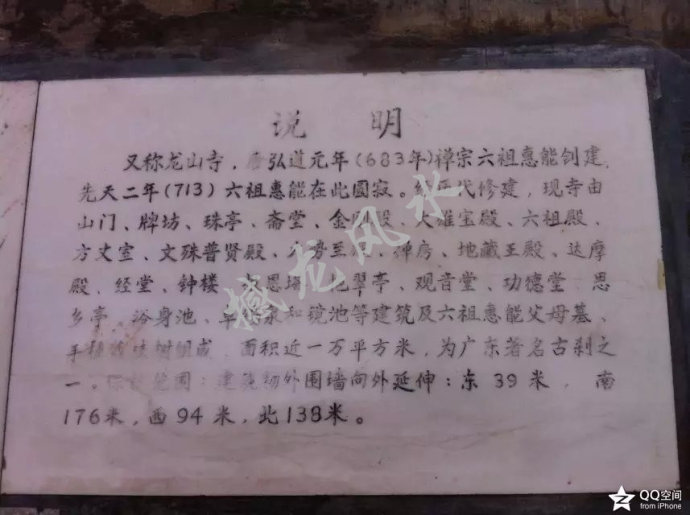 说 明
又称龙山寺，唐弘道元年(683年)禅宗六祖惠能创建，
先天二年(713)六祖惠能在此圆寂。经历代修建，现寺由
山门、牌坊、珠亭、斋堂、金刚殿、大雄宝殿、六祖殿、
方丈室、文殊普贤殿、 禅房、地藏王殿、达摩
殿、经堂、钟楼、 亭、观音堂、功德堂、思
乡亭、浴身池、 和镜池等建筑及六祖惠能父母墓、
手植 树组成，面积近一万平方米，为广东著名古刹之
一。保护范围：建筑物外围墙向外延伸：东39米，南
176米，西94米，北138米。
撼龙风水
QQ空间
from iPhone